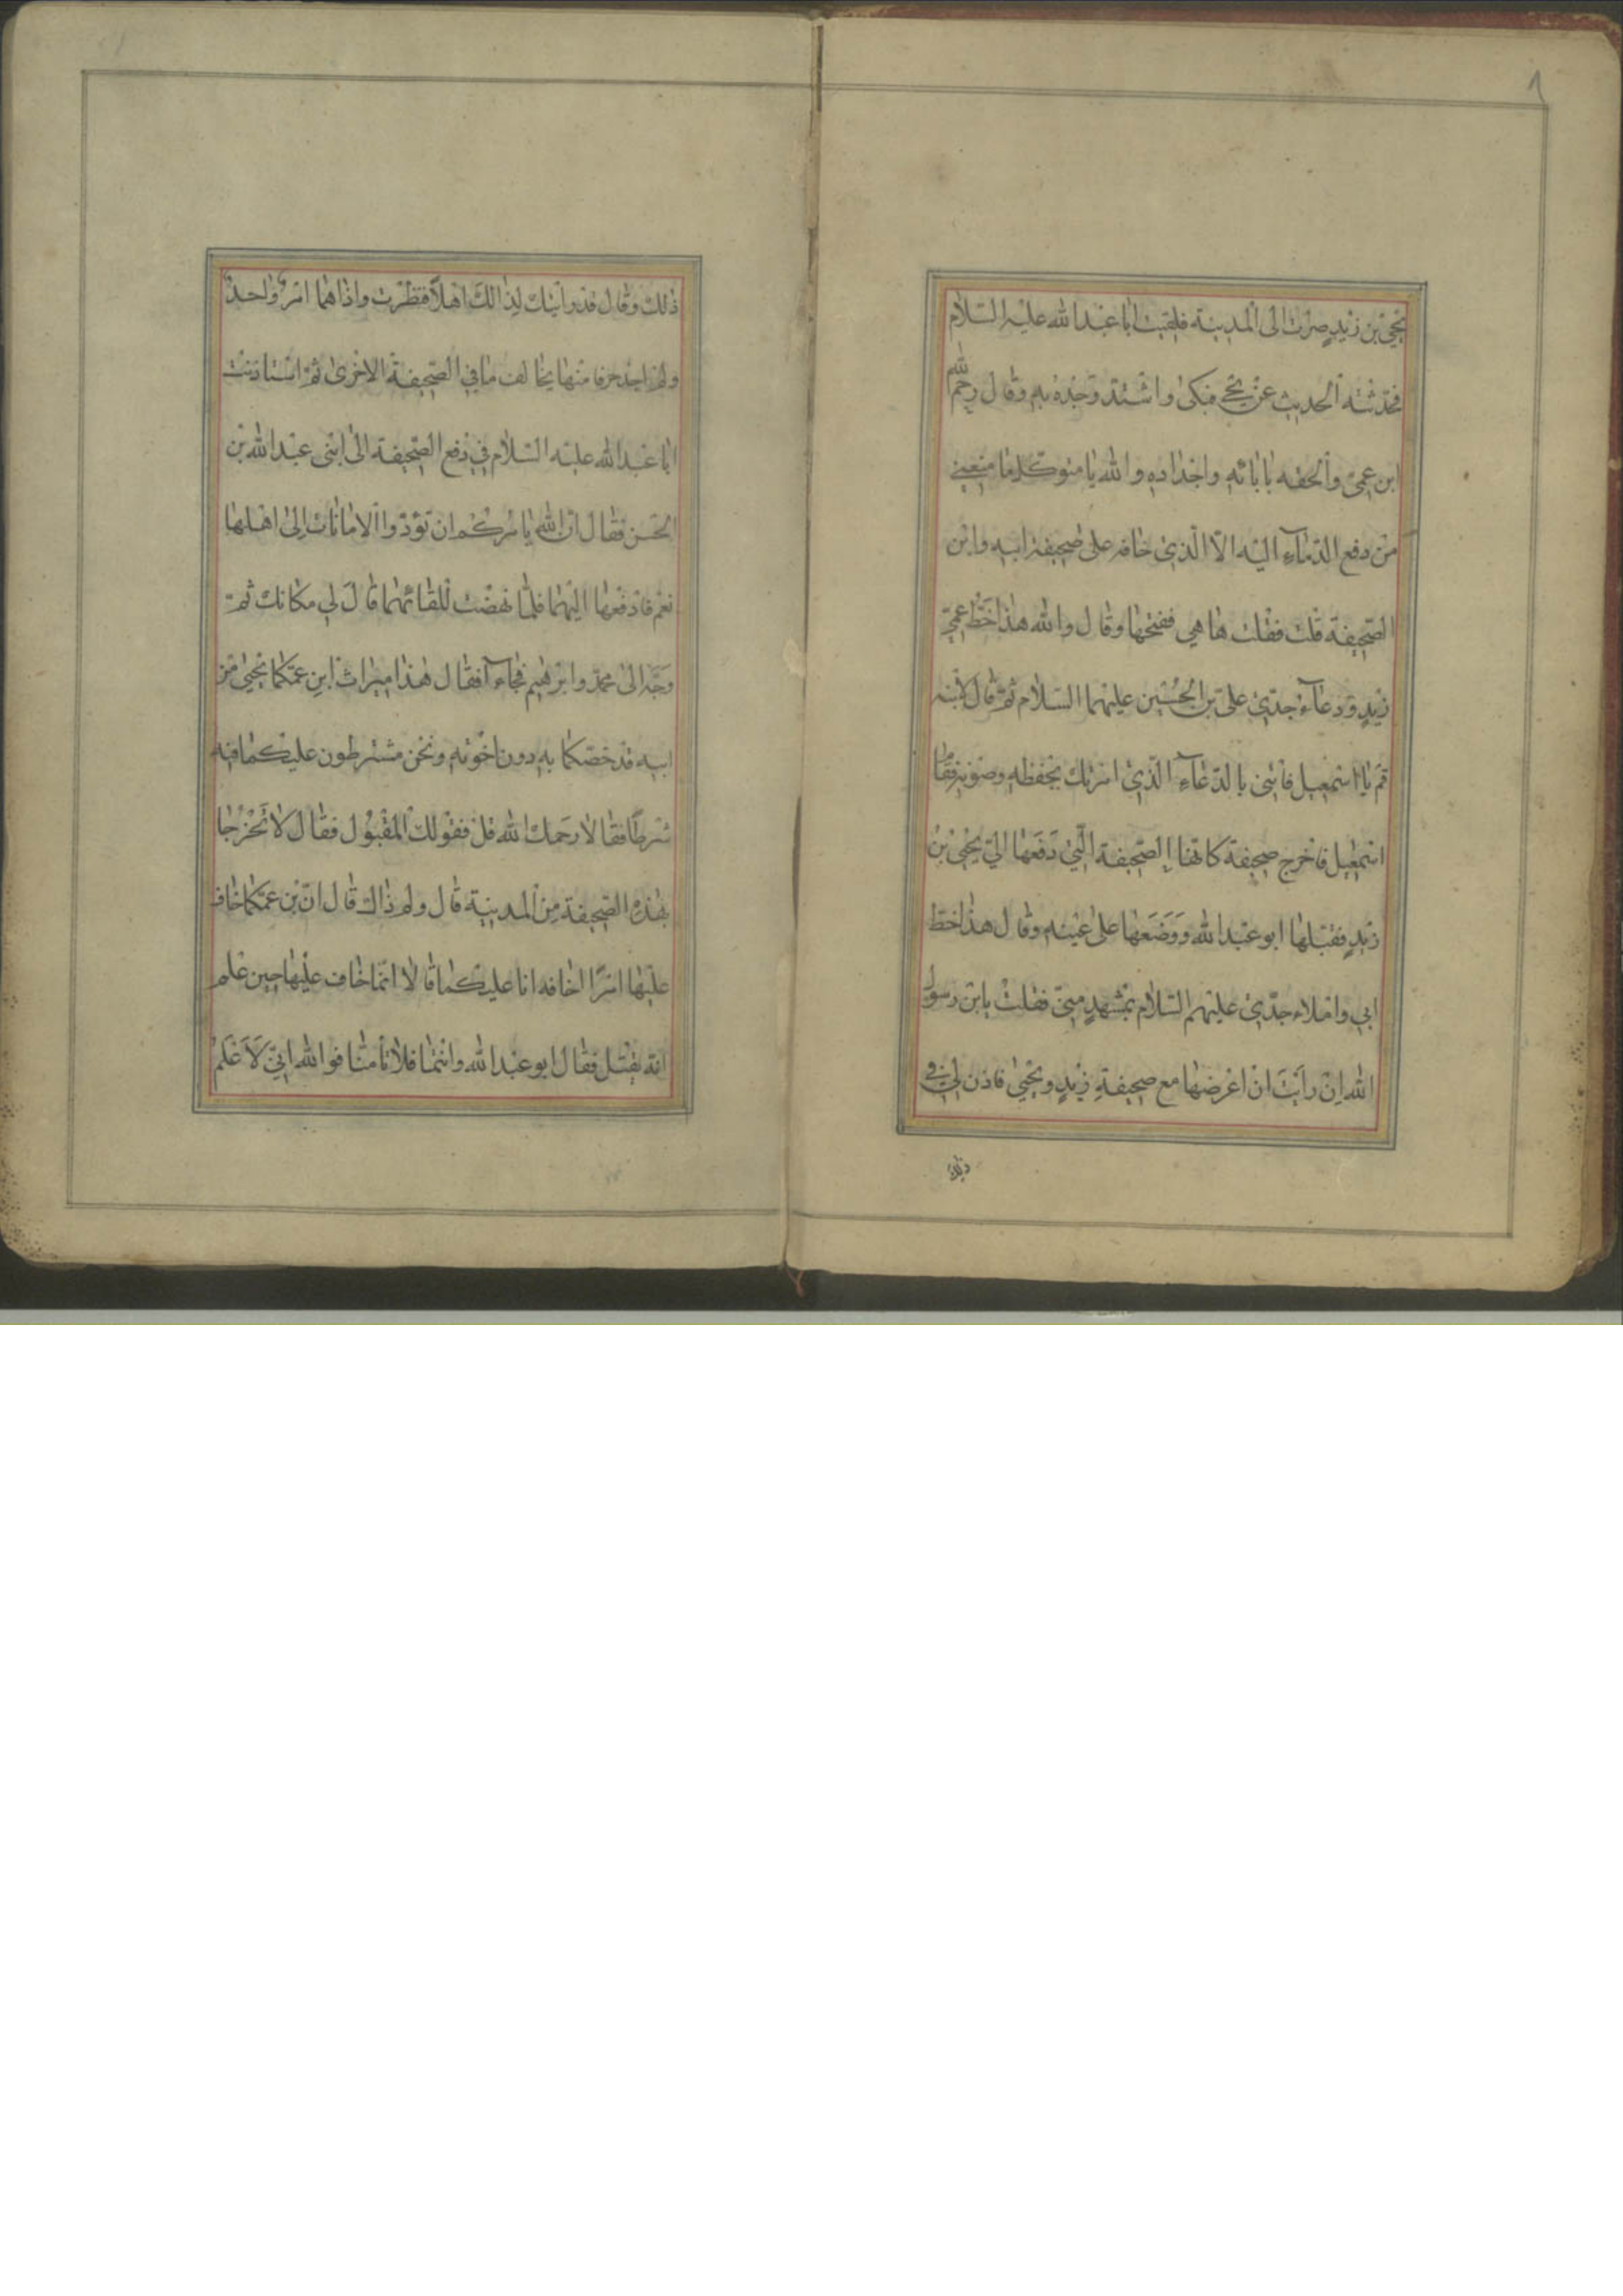 ٨
يحيى بن زيد صرت الى المدينة فلقيت ابا عبد الله عليه السلام
فحدثته الحديث عن يحيى فبكى واشتد وجده به وقال رحم الله
ابن عمي والحقه بابائه واجداده والله يا متوكل ما منعني
من دفع الدعاء اليه الا الذي خافه على صحيفة ابيه واين
الصحيفة قلت فقلت ها هي ففتحها وقال والله هذا خط عمي
زيد ودعاء جدي علي بن الحسين عليهما السلام ثم قال لابنه
قم يا اسمعيل فاتني بالدعاء الذي امرتك بحفظه وصونه فقام
اسمعيل فاخرج صحيفة كانها الصحيفة التي دفعها الي يحيى بن
زيد فقبلها ابو عبد الله ووضعها على عينه وقال هذا خط
ابي واملاء جدي عليهم السلام بمشهد مني فقلت يا بن رسول
الله ان رايت ان اعرضها مع صحيفة زيد ويحيى فاذن لي في
ذلك وقال قد رايتك لذالك اهلا فنظرت واذا هما امر واحد
ولم اجد حرفا منها يخالف ما في الصحيفة الاخرى ثم استاذنت
ابا عبد الله عليه السلام في دفع الصحيفة الى ابنى عبد الله بن
الحسن فقال ان الله يامركم ان تؤدوا الامانات الى اهلها
نعم فادفعها اليهما فلما نهضت للقائهما قال لي مكانك ثم
وجه الى محمد وابرهيم فجاءآ فقال هذا ميراث ابن عمكما يحيى من
ابيه قد خصكما به دون اخوته ونحن مشترطون عليكما فيه
شرطا فقالا رحمك الله قل فقولك المقبول فقال لا تخرجا
بهذه الصحيفة من المدينة قال ولم ذاك قال ان بن عمكما خاف
عليها امرا اخافه انا عليكما قالا انما خاف عليها حين علم
انه يقتل فقال ابو عبد الله وانتما فلا تامنا فوالله اني لاعلم